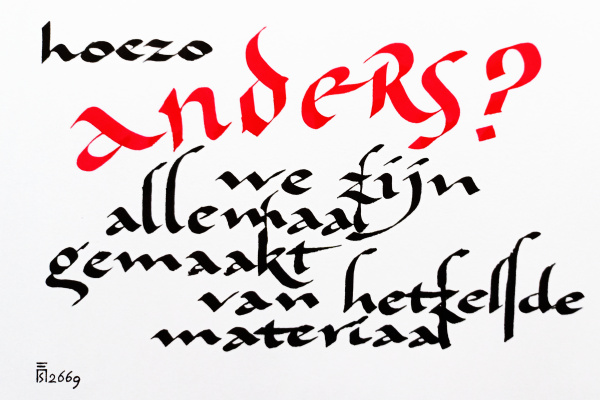 hoezo
anders?
we zijn
allemaal
gemaakt
van hetzelfde
materiaal
2669